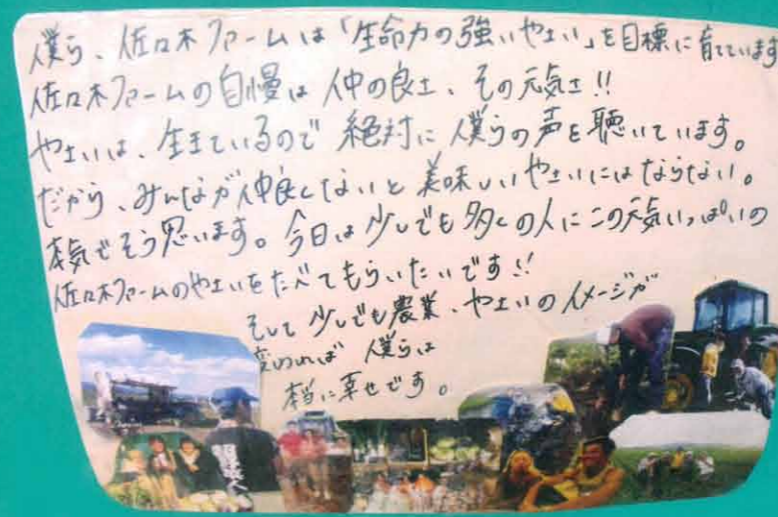 僕ら、佐々木ファームは「生命力の強いやさい」を目標に育てています
佐々木ファームの自慢は仲の良さ、その元気さ!!
やさいは、生きているので絶対に僕らの声を聴いています。
だから、みんなが仲良くないと美味しいやさいにはならない。
本気でそう思います。今日は少しでも多くの人にこの元気いっぱいの
佐々木ファームのやさいをたべてもらいたいです!!
そして少しでも農業、やさいのイメージが
変われば僕らは
本当に幸せです。